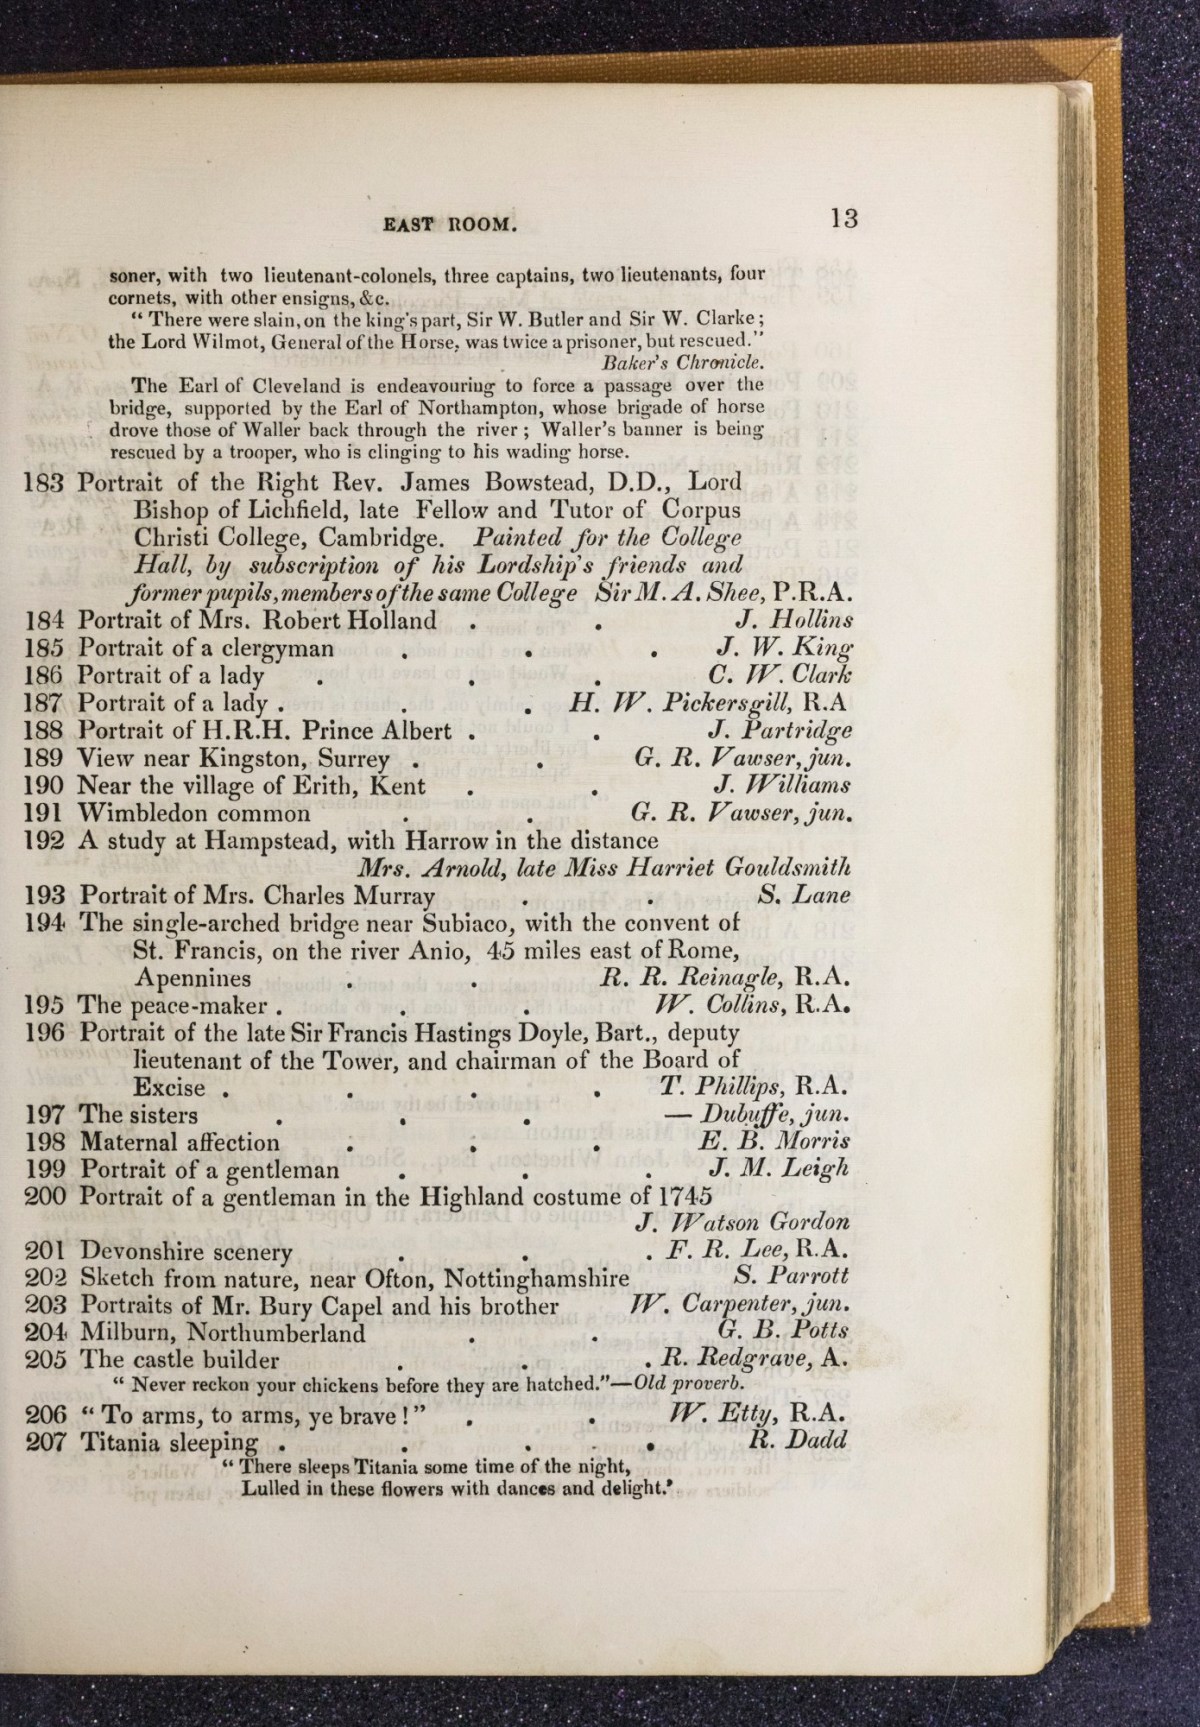 EAST ROOM. 13
soner, with two lieutenant-colonels, three captains, two lieutenants, four
cornets, with other ensigns, &c.
“ There were slain, on the king's part, Sir W. Butler and Sir W. Clarke ;
the Lord Wilmot, General of the Horse, was twice a prisoner, but rescued.”
Baker's Chronicle.
The Earl of Cleveland is endeavouring to force a passage over the
bridge, supported by the Earl of Northampton, whose brigade of horse
drove those of Waller back through the river ; Waller's banner is being
rescued by a trooper, who is clinging to his wading horse.
183 Portrait of the Right Rev. James Bowstead, D.D., Lord
Bishop of Lichfield, late Fellow and Tutor of Corpus
Christi College, Cambridge. Painted for the College
Hall, by subscription of his Lordship's friends and
former pupils, members of the same College Sir M. A. Shee, P.R.A.
184 Portrait of Mrs. Robert Holland . . J. Hollins
185 Portrait of a clergyman . . . J. W. King
186 Portrait of a lady . . . C. W. Clark
187 Portrait of a lady . . . H. W. Pickersgill, R.A
188 Portrait of H.R.H. Prince Albert . . J. Partridge
189 View near Kingston, Surrey . . G. R. Vawser, jun.
190 Near the village of Erith, Kent . . J. Williams
191 Wimbledon common . . G. R. Vawser, jun.
192 A study at Hampstead, with Harrow in the distance
Mrs. Arnold, late Miss Harriet Gouldsmith
193 Portrait of Mrs. Charles Murray . . S. Lane
194 The single-arched bridge near Subiaco, with the convent of
St. Francis, on the river Anio, 45 miles east of Rome,
Apennines . . R. R. Reinagle, R.A.
195 The peace-maker . . . W. Collins, R.A.
196 Portrait of the late Sir Francis Hastings Doyle, Bart., deputy
lieutenant of the Tower, and chairman of the Board of
Excise . . . . T. Phillips, R.A.
197 The sisters . . . — Dubuffe, jun.
198 Maternal affection . . . E. B. Morris
199 Portrait of a gentleman . . . J. M. Leigh
200 Portrait of a gentleman in the Highland costume of 1745
J. Watson Gordon
201 Devonshire scenery . . . F. R. Lee, R.A.
202 Sketch from nature, near Ofton, Nottinghamshire S. Parrott
203 Portraits of Mr. Bury Capel and his brother W. Carpenter, jun.
204 Milburn, Northumberland . . G. B. Potts
205 The castle builder . . . R. Redgrave, A.
“ Never reckon your chickens before they are hatched.”—Old proverb.
206 “ To arms, to arms, ye brave ! ” . . W. Etty, R.A.
207 Titania sleeping . . . . R. Dadd
“ There sleeps Titania some time of the night,
Lulled in these flowers with dances and delight.'